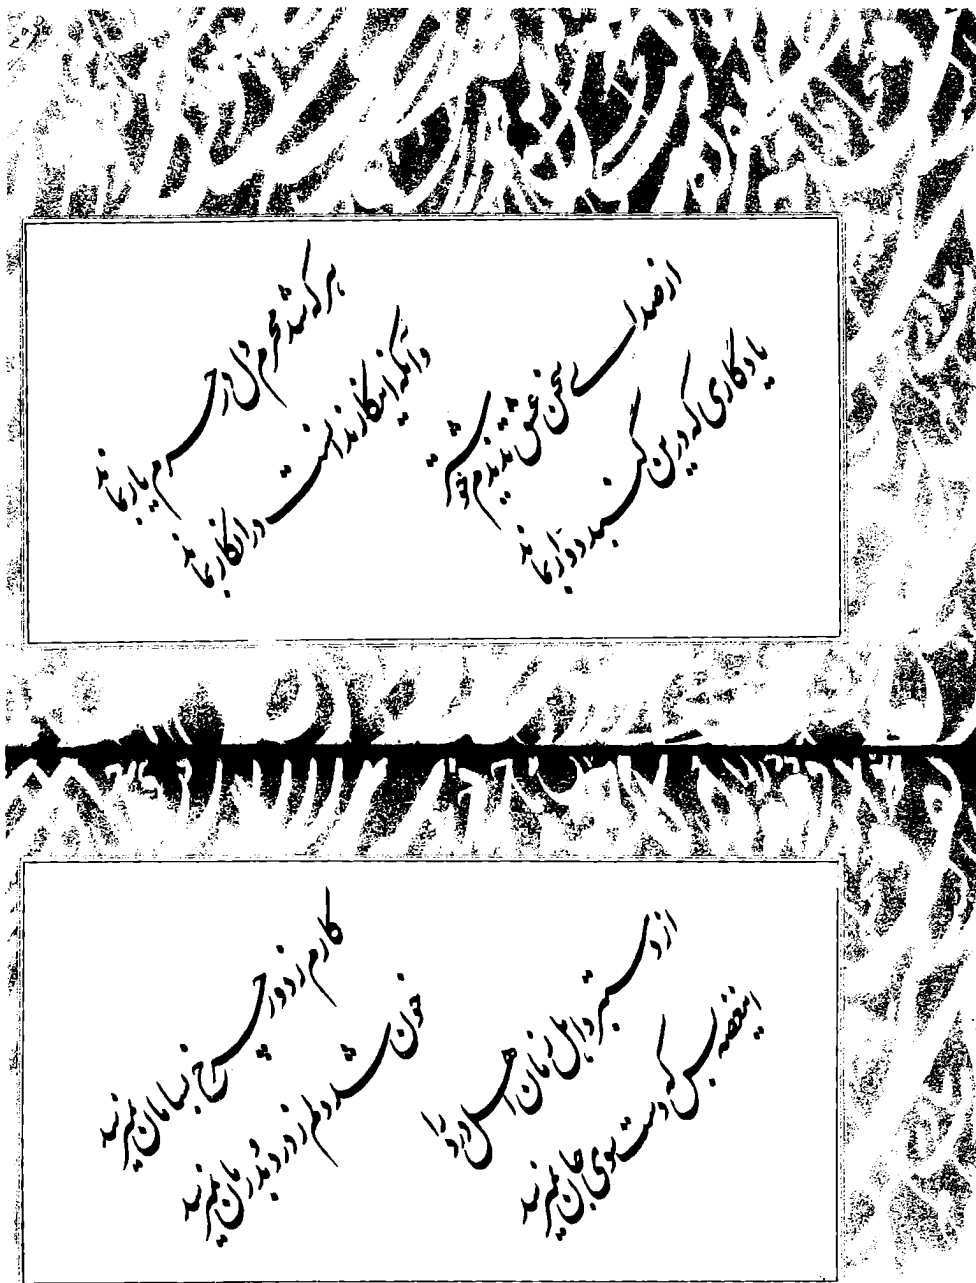 هر که شد محرم دل در حرم یار بماند
وآنکه این کار ندانست در انکار بماند
از صدای سخن عشق ندیدم خوشتر
یادگاری که درین گنبد دوار بماند
کارم ز دور چرخ بسامان نمیرسد
خون شد دلم ز درد و بدرمان نمیرسد
از دستبرد اهل زمان اهل
این غصه بس که دست سوی جان نمیرسد